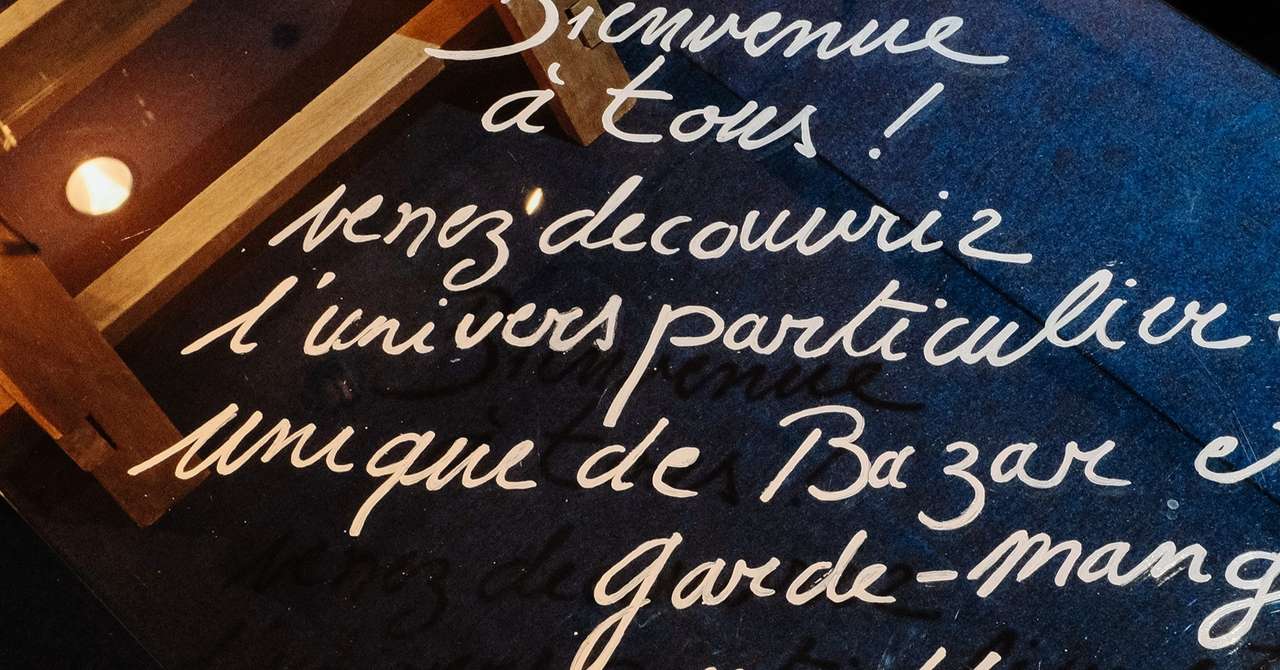 Bienvenue
à tous !
venez decouvrir
l'univers particulier -
unique de Bazar et
garde-mang